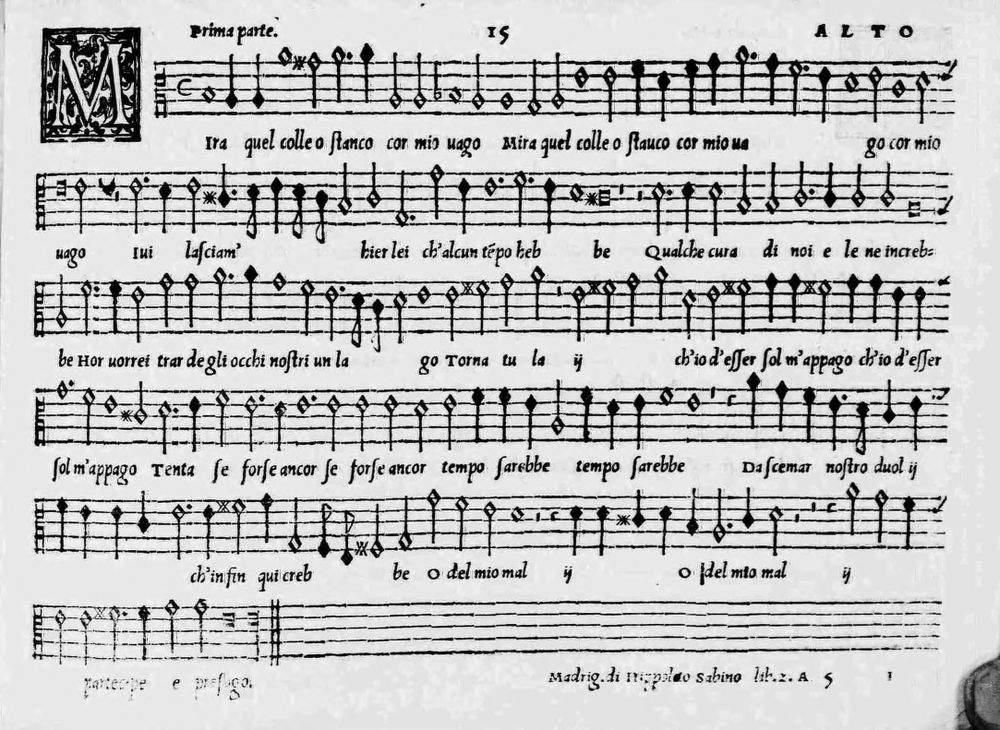 Prima parte. 15 ALTO
MIra quel colle o stanco cor mio uago Mira quel colle o stauco cor mio ua go cor mio
uago Iui lasciam' hier lei ch'alcun tẽpo heb be Qualche cura di noi e le ne increb=
be Hor uorrei trar de gli occhi nostri un la go Torna tu la ij ch'io d'esser sol m'appago ch'io d'esser
sol m'appago Tenta se forse ancor se forse ancor tempo sarebbe tempo sarebbe Da scemar nostro duol ij
ch'infin qui creb be O del mio mal ij O del mio mal ij
partecipe e presago.
Madrig. di Hippolito Sabino lib. 2. A 5 I